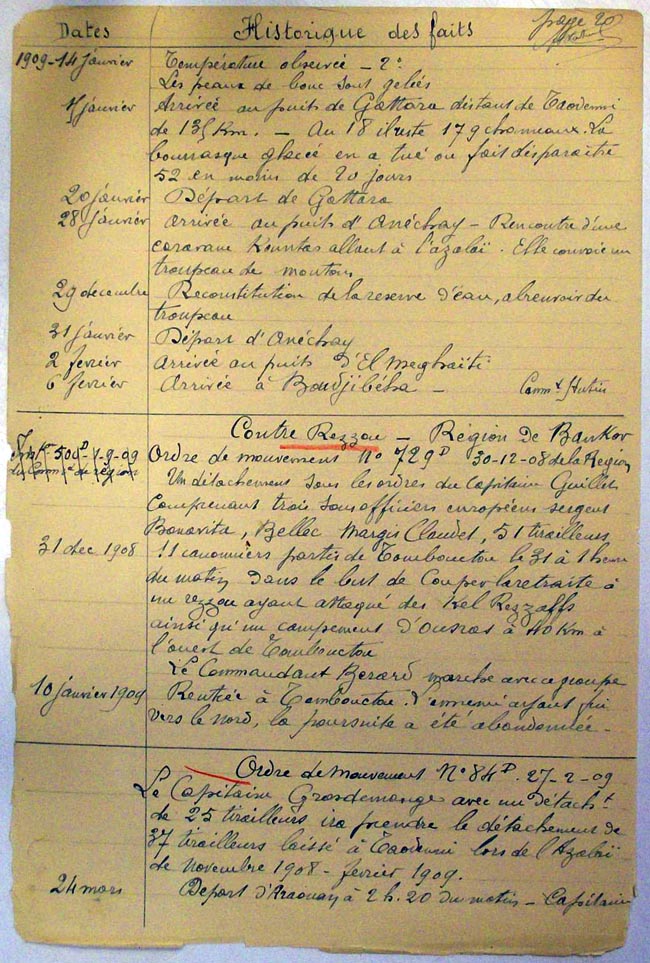 Dates
Historique des faits
page 20
1909-14 janvier
Température observée - 2°
Les peaux de bouc sont gelées
janvier
Arrivée au puits de Gattara distant de Taodenni
de 135 km. - Au 18 il reste 179 chameaux. La
bourrasque glacée en a tué ou fait disparaître
52 en moins de 20 jours
20 janvier
Départ de Gattara
28 janvier
Arrivée au puits d'Anéchay - Rencontre d'une
caravane Kountas allant à l'azalaï. Elle convoie un
troupeau de moutons
29 décembre
Reconstitution de la réserve d'eau, abreuvoir du
troupeau
31 janvier
Départ d'Anéchay
2 février
Arrivée au puits d'El Meghaïti
6 février
Arrivée à Boudjibéha -
Commt Hutin
Contre Rezzou - Région de Bankor
504D 1-9-09
du Commt de région
Ordre de mouvement N° 729D 30-12-08 de la Région
Un détachement sous les ordres du Capitaine Guillet
comprenant trois sous officiers européens sergent
Bonavita, Bellec Margis Claudet, 51 tirailleurs,
31 dec 1908
11 canonniers partis de Tombouctou le 31 à 1 heure
du matin dans le but de couper la retraite à
un rezzou ayant attaqué des Kel Rezzaffs
ainsi qu'un campement d'Ousras à 40 Km à
l'ouest de Tombouctou
Le Commandant Berard marche avec ce groupe
10 janvier 1909
Rentrée à Tombouctou. L'ennemi ayant fui
vers le nord, la poursuite a été abandonnée -
Ordre de Mouvement N° 84D. 27-2-09
Le Capitaine Grosdemange avec un détacht
de 25 tirailleurs ira prendre le détachement de
37 tirailleurs laissé à Taodenni lors de l'Azalaï
de novembre 1908 - février 1909.
24 mars
Départ d'Araouan à 2 h. 20 du matin - Capitaine